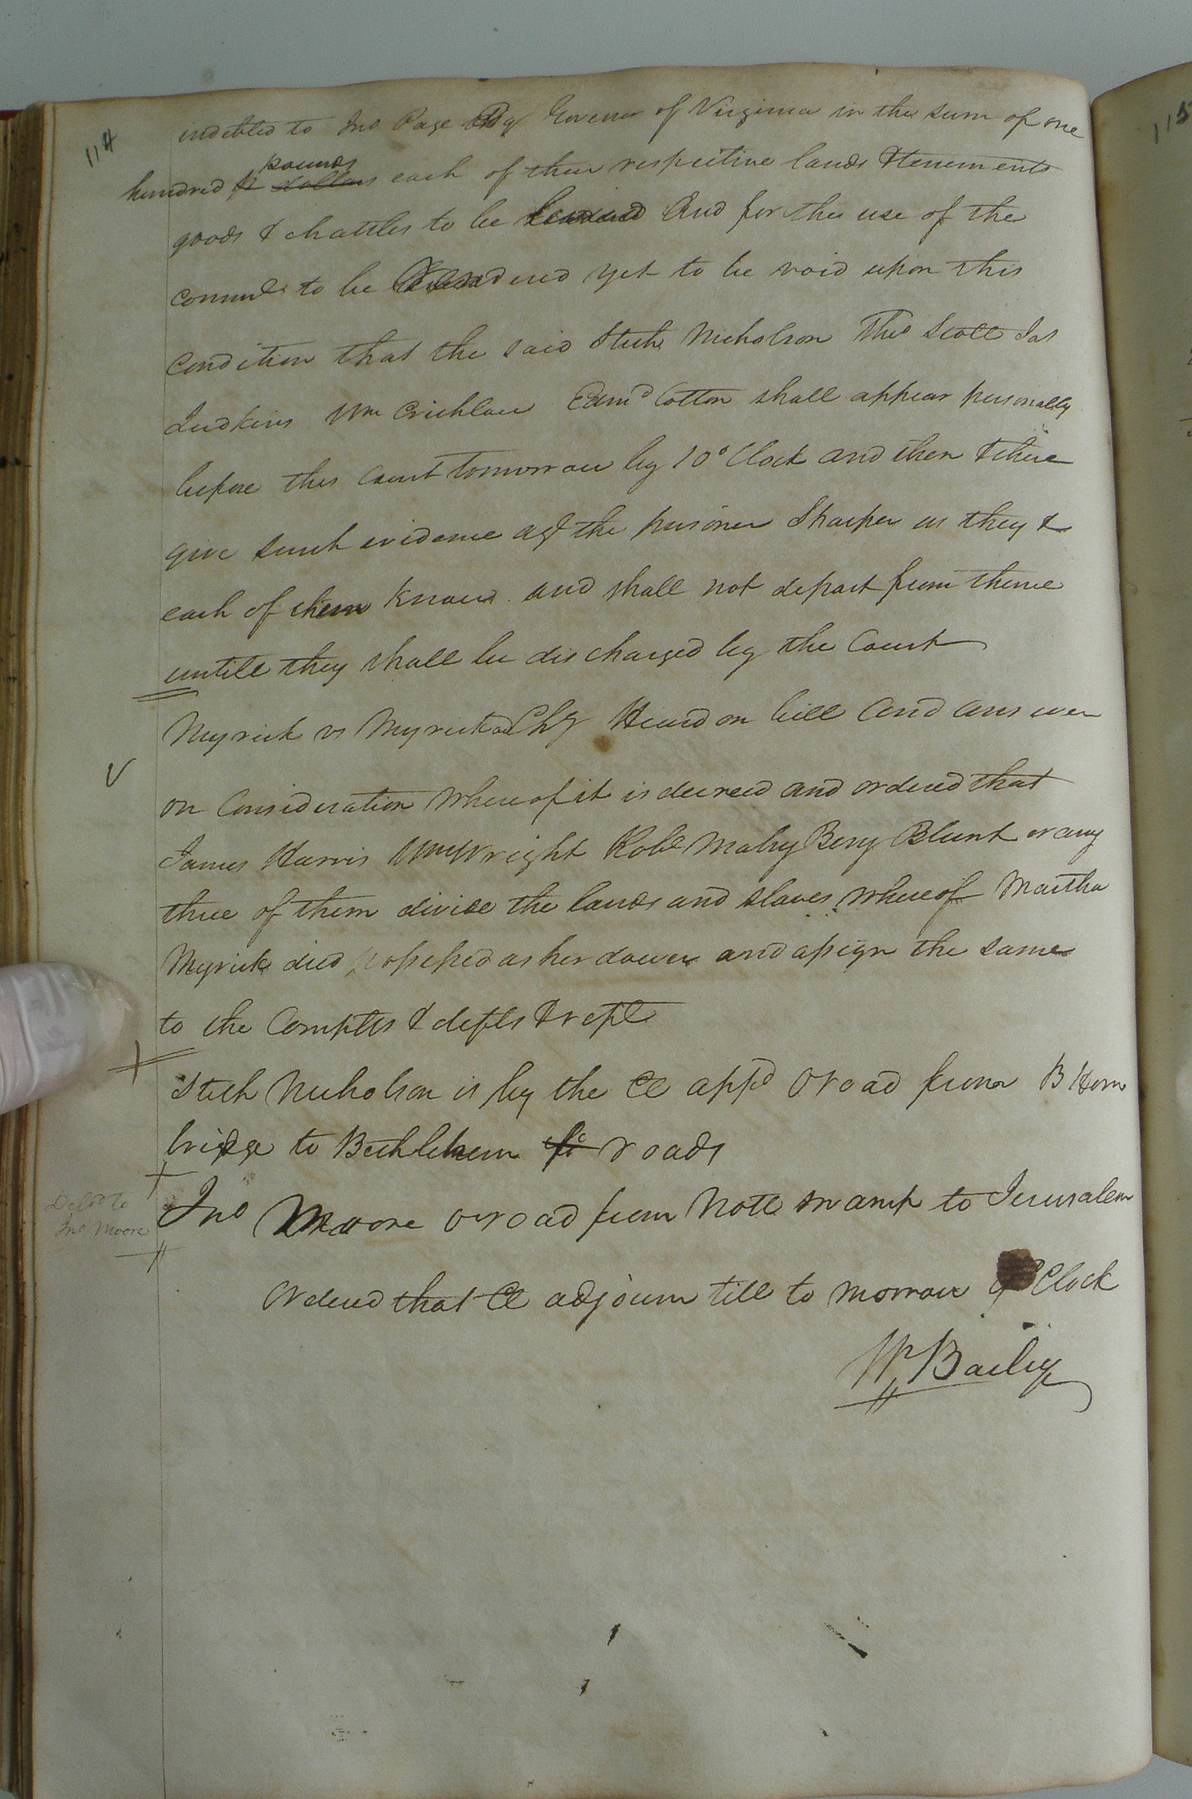 114
115
indebted to Jno Page Esqr Govenor of Virginia in the sum of one
pounds
hundred dollars each of their respective lands & tenements
goods & chattles to be levied And for the use of the
commth to be rendered yet to be void upon this
condition that the said Steth Nicholson Thos Scott Jas
Judkins Wm Crichlow Edmd Cotton shall appear personally
before this Court tomorrow by 10 o Clock and then & there
give such evidence agt the prisoner Sharper as they &
each of them know and shall not depart from thence
untill they shall be discharged by the Court
Myrick vs Myrick Chy Heard on bill and answer
on Consideration whereof it is decreed and ordered that
James Harris Wm Wright Robt Mabry Benj Blunt or any
three of them divide the lands and slaves whereof Martha
Myrick died possessed as her dower and assign the same
to the Complts & defts & rept
Steth Nicholson is by the Ct appd O road from B Horn
bridge to Bethlehem roads
Deld to
Jno Moore
Jno Moore O road from Nott swamp to Jerusalem
Ordered that Ct adjourn till to morrow Clock
W Bailey